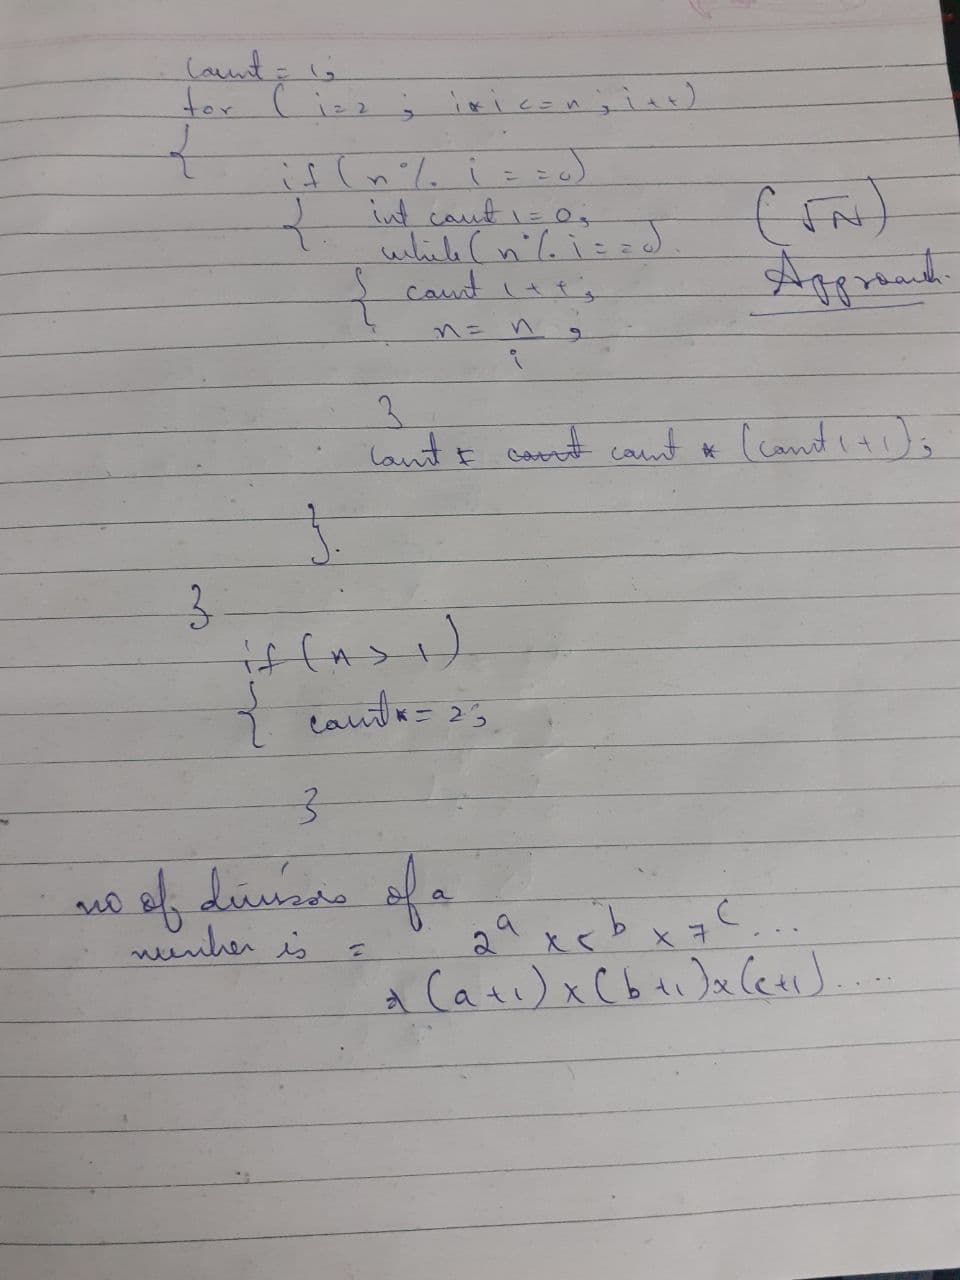 Count = 1;
for ( i=2 ; i*i <= n ; i++)
{
if (n % i == 0)
{ int count 1 = 0;
while ( n % i == 0)
{ count 1++;
n = n/i ;
}
count = count count * (count 1+1);
}
}
if (n > 1)
{ count *= 2;
}
(√N)
Approach.
no of divisors of a
number is = 2^a x 5^b x 7^c ...
(a+1) x (b+1) x (c+1) ....